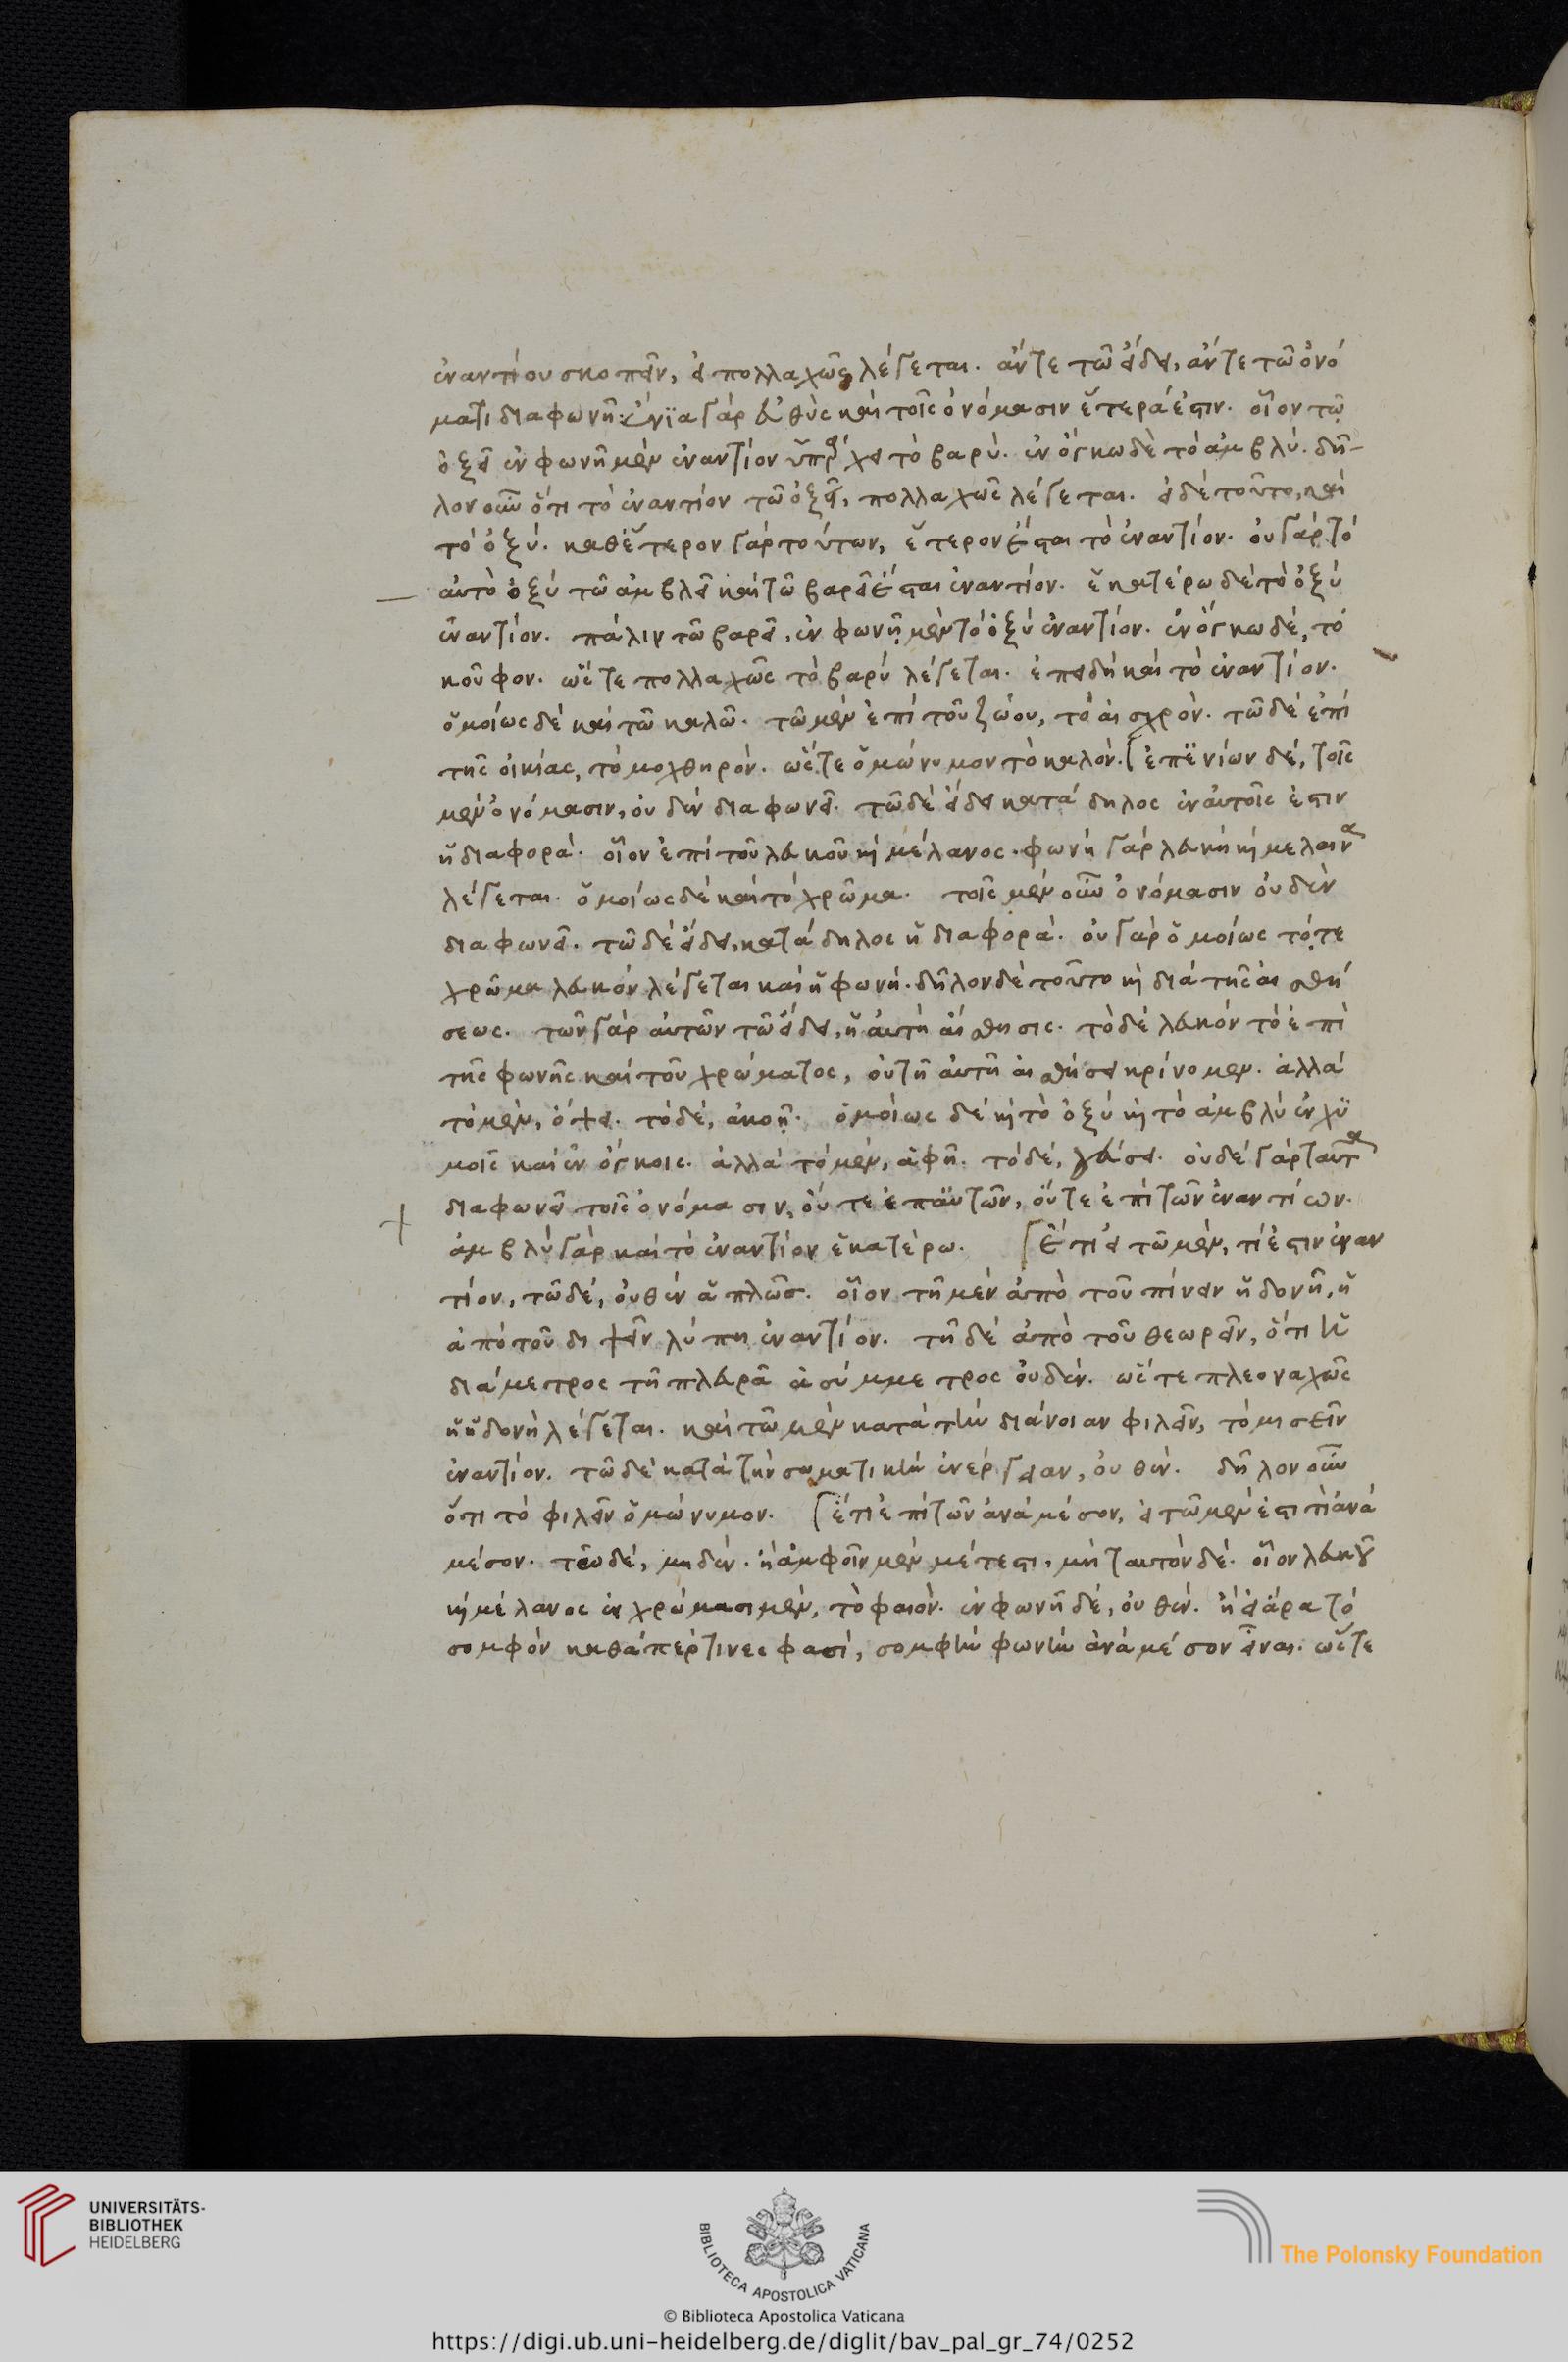 ἐναντίου σκοπεῖν, εἰ πολλαχῶς λέγεται. ἄν τε τῶ εἴδει, ἄν τε τῶ ὀνό
ματι διαφωνῆ· ἔνια γὰρ εὐθὺς καὶ τοῖς ὀνόμασιν ἕτερά ἐστιν. οἷον τῶ
ὀξεῖ ἐν φωνῆ μὲν ἐναντίον ὑπάρχει τὸ βαρύ. ἐν ὄγκω δὲ τὸ ἀμβλύ. δῆ-
λον οὖν ὅτι τὸ ἐναντίον τῶ ὀξεῖ, πολλαχῶς λέγεται. εἰ δὲ τοῦτο, καὶ
τὸ ὀξύ. καθ' ἕτερον γὰρ τούτων, ἕτερον ἔσται τὸ ἐναντίον. οὐ γὰρ τὸ
αὐτὸ ὀξὺ τῶ ἀμβλεῖ καὶ τῶ βαρεῖ ἔσται ἐναντίον. ἑκατέρω δὲ τὸ ὀξὺ
ἐναντίον. πάλιν τῶ βαρεῖ, ἐν φωνῆ μὲν τὸ ὀξὺ ἐναντίον. ἐν ὄγκω δὲ, τὸ
κοῦφον. ὥστε πολλαχῶς τὸ βαρὺ λέγεται. ἐπειδὴ καὶ τὸ ἐναντίον.
ὁμοίως δὲ καὶ τῶ καλῶ. τῶ μὲν ἐπὶ τοῦ ζώου, τὸ αἰσχρόν. τῶ δὲ ἐπὶ
τῆς οἰκίας, τὸ μοχθηρόν. ὥστε ὁμώνυμον τὸ καλόν. ἐπ' ἐνίων δὲ, τοῖς
μὲν ὀνόμασιν, οὐδὲν διαφωνεῖ. τῶ δὲ εἴδει κατάδηλος ἐν αὐτοῖς ἐστιν
ἡ διαφορά. οἷον ἐπὶ τοῦ λευκοῦ καὶ μέλανος. φωνὴ γὰρ λευκὴ καὶ μέλαινα
λέγεται. ὁμοίως δὲ καὶ τὸ χρῶμα. τοῖς μὲν οὖν ὀνόμασιν οὐδὲν
διαφωνεῖ. τῶ δὲ εἴδει, κατάδηλος ἡ διαφορά. οὐ γὰρ ὁμοίως τό τε
χρῶμα λευκὸν λέγεται καὶ ἡ φωνή. δῆλον δὲ τοῦτο καὶ διὰ τῆς αἰσθή
σεως. τῶν γὰρ αὐτῶν τῶ εἴδει, ἡ αὐτὴ αἴσθησις. τὸ δὲ λευκὸν τὸ ἐπὶ
τῆς φωνῆς καὶ τοῦ χρώματος, οὐ τῆ αὐτῆ αἰσθήσει κρίνομεν. ἀλλὰ
τὸ μὲν, ὄψει. τὸ δὲ, ἀκοῆ. ὁμοίως δὲ καὶ τὸ ὀξὺ καὶ τὸ ἀμβλὺ ἐν χυ
μοῖς καὶ ἐν ὄγκοις. ἀλλὰ τὸ μὲν, ἀφῆ. τὸ δὲ, γεύσει. οὐδὲ γὰρ ταῦτα
διαφωνεῖ τοῖς ὀνόμασιν, οὔτε ἐπ' αὐτῶν, οὔτε ἐπὶ τῶν ἐναντίων.
ἀμβλὺ γὰρ καὶ τὸ ἐναντίον ἑκατέρω. ἔτι εἰ τῶ μὲν, τί ἐστιν ἐναν
τίον, τῶ δὲ, οὐθὲν ἁπλῶς. οἷον τῆ μὲν ἀπὸ τοῦ πίνειν ἡδονῆ, ἡ
ἀπὸ τοῦ διψεῖν λύπη ἐναντίον. τῆ δὲ ἀπὸ τοῦ θεωρεῖν, ὅτι ἡ
διάμετρος τῆ πλευρᾶ ἀσύμμετρος οὐδέν. ὥστε πλεοναχῶς
ἡ ἡδονὴ λέγεται. καὶ τῶ μὲν κατὰ τὴν διάνοιαν φιλεῖν, τὸ μισεῖν
ἐναντίον. τῶ δὲ κατὰ τὴν σωματικὴν ἐνέργειαν, οὐθέν. δῆλον οὖν
ὅτι τὸ φιλεῖν ὁμώνυμον. ἔτι ἐπὶ τῶν ἀνὰ μέσον, εἰ τῶ μὲν ἐστι τὶ ἀνὰ
μέσον. τῶ δὲ, μηδέν. ἢ ἀμφοῖν μὲν μέτεστι, μὴ ταυτὸν δέ. οἷον λευκοῦ
καὶ μέλανος ἐν χρώμασι μὲν, τὸ φαιόν. ἐν φωνῆ δὲ, οὐθέν. ἢ εἰ ἄρα τὸ
σομφὸν καθάπερ τινές φασί, σομφὴν φωνὴν ἀνὰ μέσον εἶναι. ὥστε
UNIVERSITÄTS-
BIBLIOTHEK
HEIDELBERG
BIBLIOTECA APOSTOLICA VATICANA
The Polonsky Foundation
© Biblioteca Apostolica Vaticana
https://digi.ub.uni-heidelberg.de/diglit/bav_pal_gr_74/0252